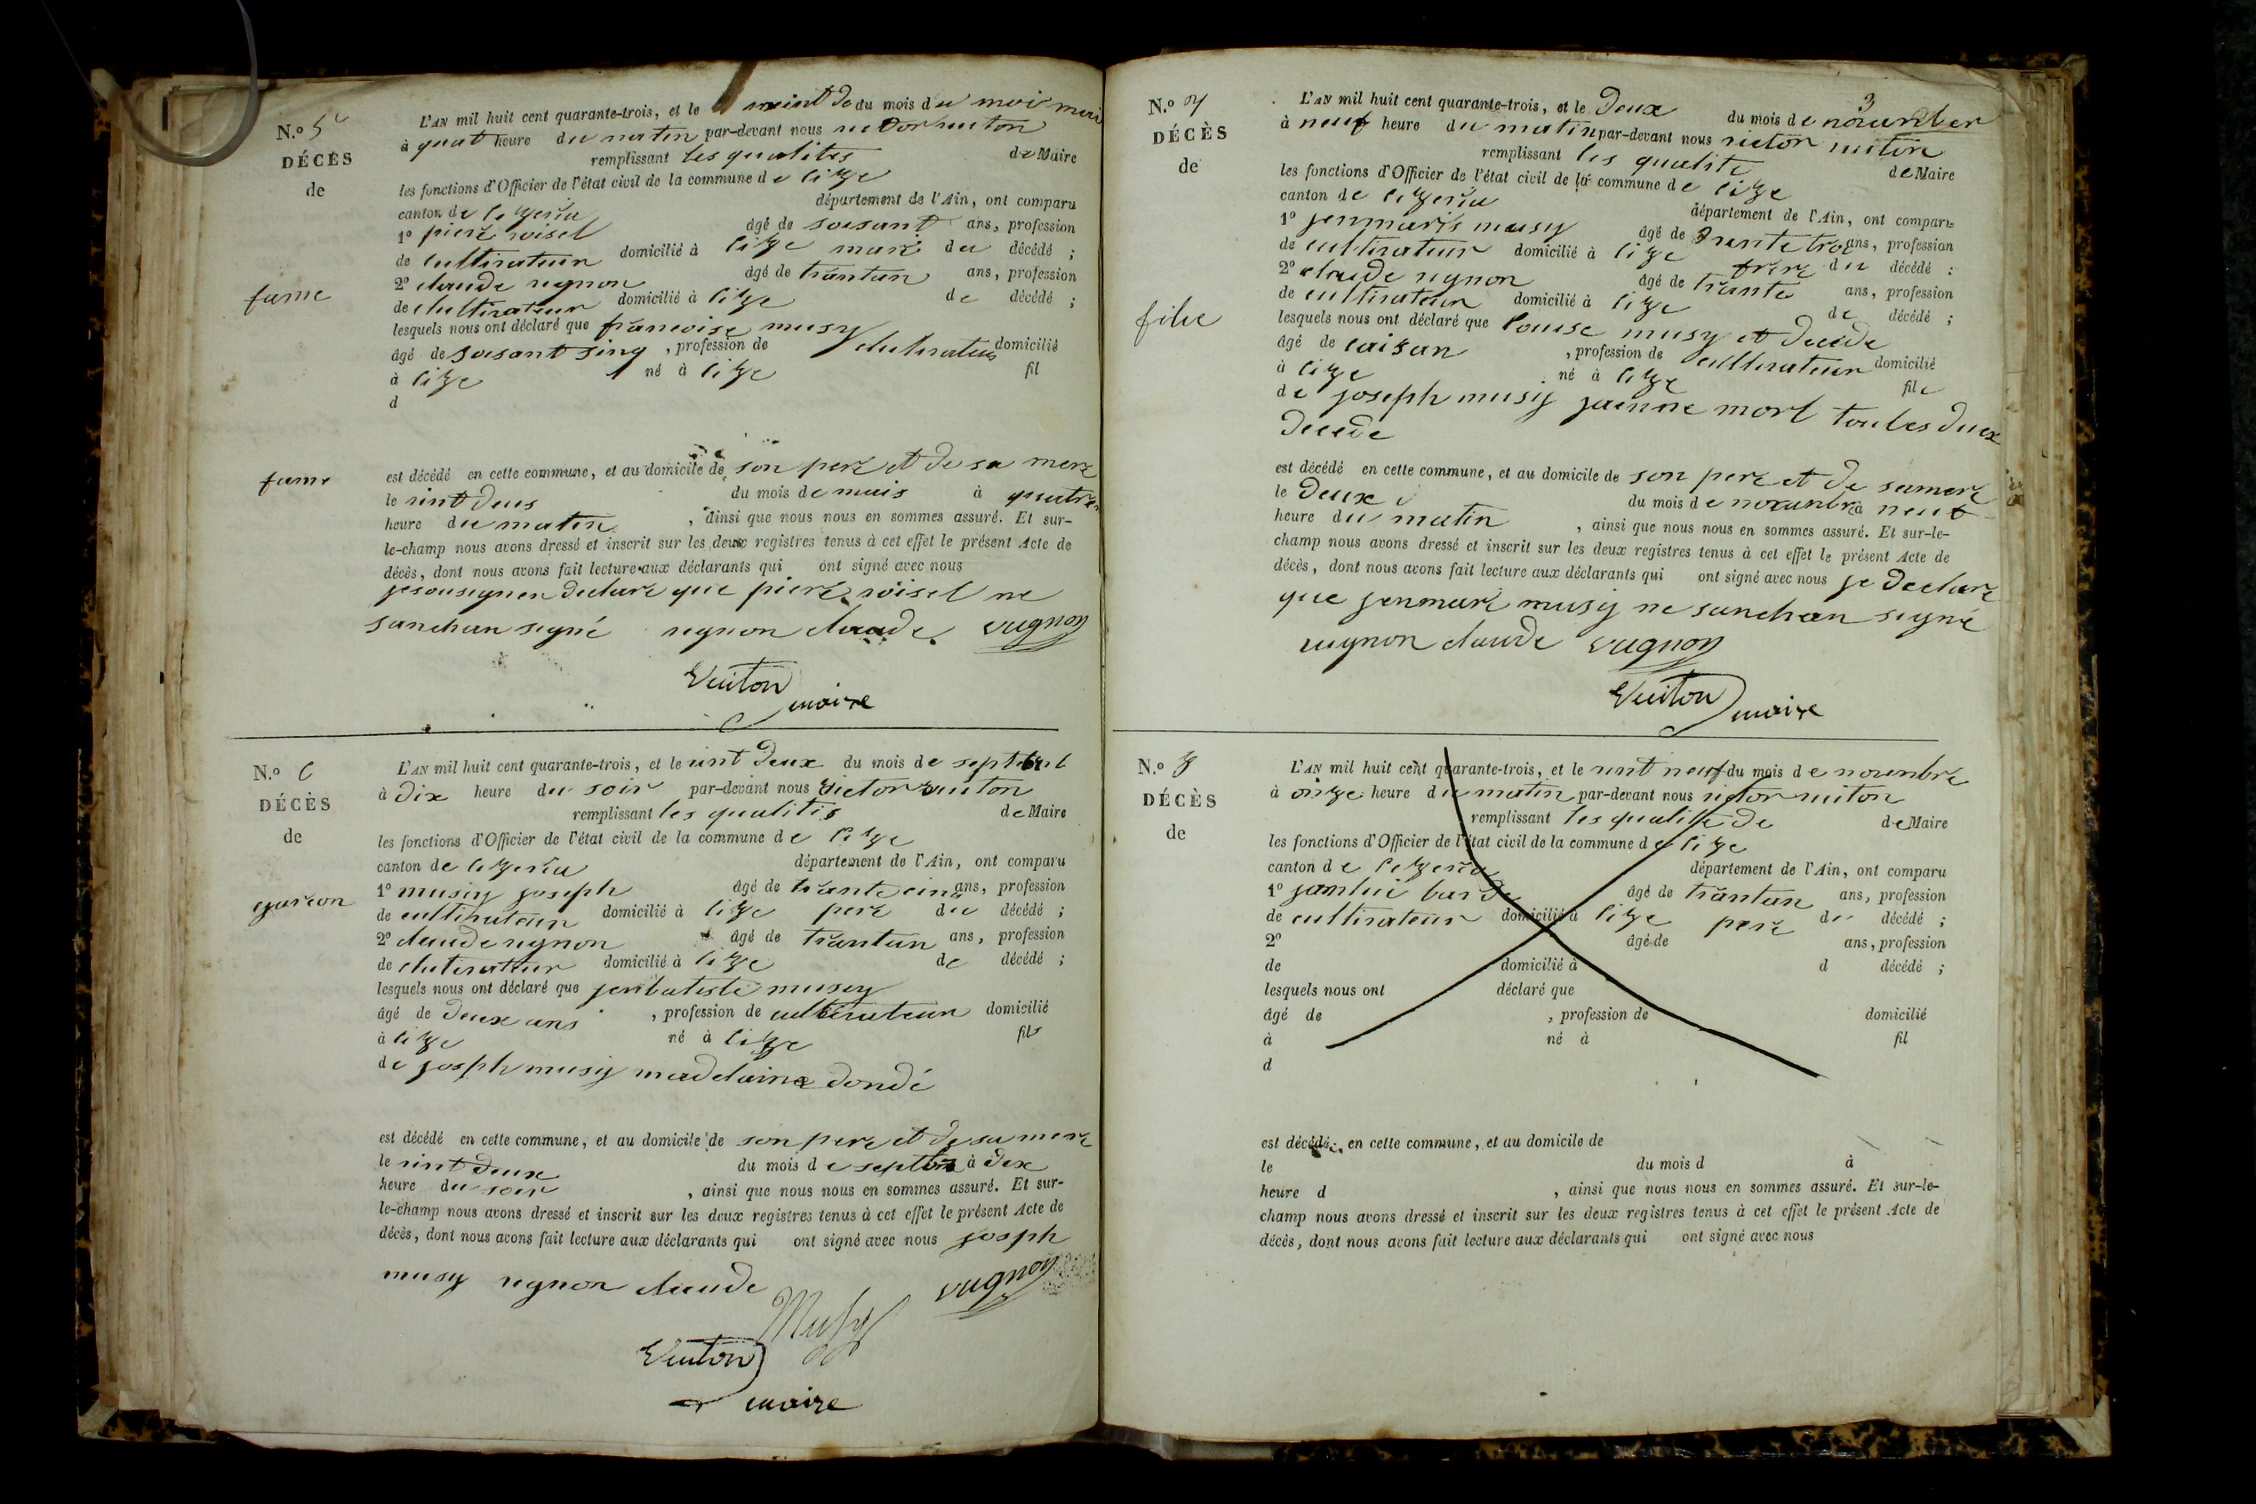 N.o 5
DÉCÈS
de
fame
fame
L'AN mil huit cent quarante-trois, et le vint de du mois du moi
à quat heure du matin par-devant nous victor vuiton
remplissant les qualites de Maire
les fonctions d'Officier de l'état civil de la commune de lize
canton de
département de l'Ain, ont comparu
1o piere voisel âgé de soisant ans, profession
de cultivateur domicilié à lize mari du décédé ;
2o claude vignon âgé de trantun ans, profession
de clultivateur domicilié à lize de décédé ;
lesquels nous ont déclaré que francoise musy
âgé de soisant sinq , profession de clultivateur domicilié
à lize né à lize fil
d
est décédé en cette commune, et au domicile de son pere et de sa mere
le vint deus du mois de mais à quatre
heure du matin , ainsi que nous nous en sommes assuré. Et sur-
le-champ nous avons dressé et inscrit sur les deux registres tenus à cet effet le présent Acte de
décès, dont nous avons fait lecture aux déclarants qui ont signé avec nous
je sousignen declare que piere voisel ne
sanchan signé vignon claude vugnon
Vuiton
maire
N.o 6
DÉCÈS
de
garcon
L'AN mil huit cent quarante-trois, et le vint deux du mois de
à dix heure du soir par-devant nous victor vuiton
remplissant les qualitis de Maire
les fonctions d'Officier de l'état civil de la commune de lize
canton de
département de l'Ain, ont comparu
1o musiy joseph âgé de trante cinq ans, profession
de cultivateur domicilié à lize pere du décédé ;
2o claude vignon âgé de trantun ans, profession
de clutivateur domicilié à lize de décédé ;
lesquels nous ont déclaré que jenbatiste musey
âgé de deux ans , profession de cultivateur domicilié
à lize né à lize fils
de josph musiy madelaine dondé
est décédé en cette commune, et au domicile de son pere et de sa mere
le vint deux du mois de à dix
heure du soir , ainsi que nous nous en sommes assuré. Et sur-
le-champ nous avons dressé et inscrit sur les deux registres tenus à cet effet le présent Acte de
décès, dont nous avons fait lecture aux déclarants qui ont signé avec nous josph
musy vignon claude vugnon
Musy
Vuiton
maire
3
N.o 7
DÉCÈS
de
filie
L'AN mil huit cent quarante-trois, et le deux du mois de
à neuf heure du matin par-devant nous victor vuiton
remplissant les qualite de Maire
les fonctions d'Officier de l'état civil de la commune de lize
canton de
département de l'Ain, ont comparu
1o jenmaris musy âgé de trante troi ans, profession
de cultivateur domicilié à lize frere du décédé ;
2o claude vignon âgé de trante ans, profession
de cultivateur domicilié à lize de décédé ;
lesquels nous ont déclaré que louise musy et decede
âgé de , profession de cultivateur domicilié
à lize né à lize file
de joseph musiy jaenne mort toutes deux
decede
est décédé en cette commune, et au domicile de son pere et de samere
le deux du mois de novanbre à neuf
heure du matin , ainsi que nous nous en sommes assuré. Et sur-le-
champ nous avons dressé et inscrit sur les deux registres tenus à cet effet le présent Acte de
décès, dont nous avons fait lecture aux déclarants qui ont signé avec nous je declare
que jenmare musiy ne sanchan signé
vignon claude vugnon
Vuiton
maire
N.o 8
DÉCÈS
de
L'AN mil huit cent quarante-trois, et le vint neuf du mois de novenbre
à onze heure du matin par-devant nous victor vuiton
remplissant les qualite de de Maire
les fonctions d'Officier de l'état civil de la commune de lize
canton de
département de l'Ain, ont comparu
1o janlui barde âgé de trantun ans, profession
de cultivateur domicilié à lize pere du décédé ;
2o âgé de ans, profession
de domicilié à d décédé ;
lesquels nous ont déclaré que
âgé de , profession de domicilié
à né à fil
d
est décédé en cette commune, et au domicile de
le du mois d à
heure d , ainsi que nous nous en sommes assuré. Et sur-le-
champ nous avons dressé et inscrit sur les deux registres tenus à cet effet le présent Acte de
décès, dont nous avons fait lecture aux déclarants qui ont signé avec nous